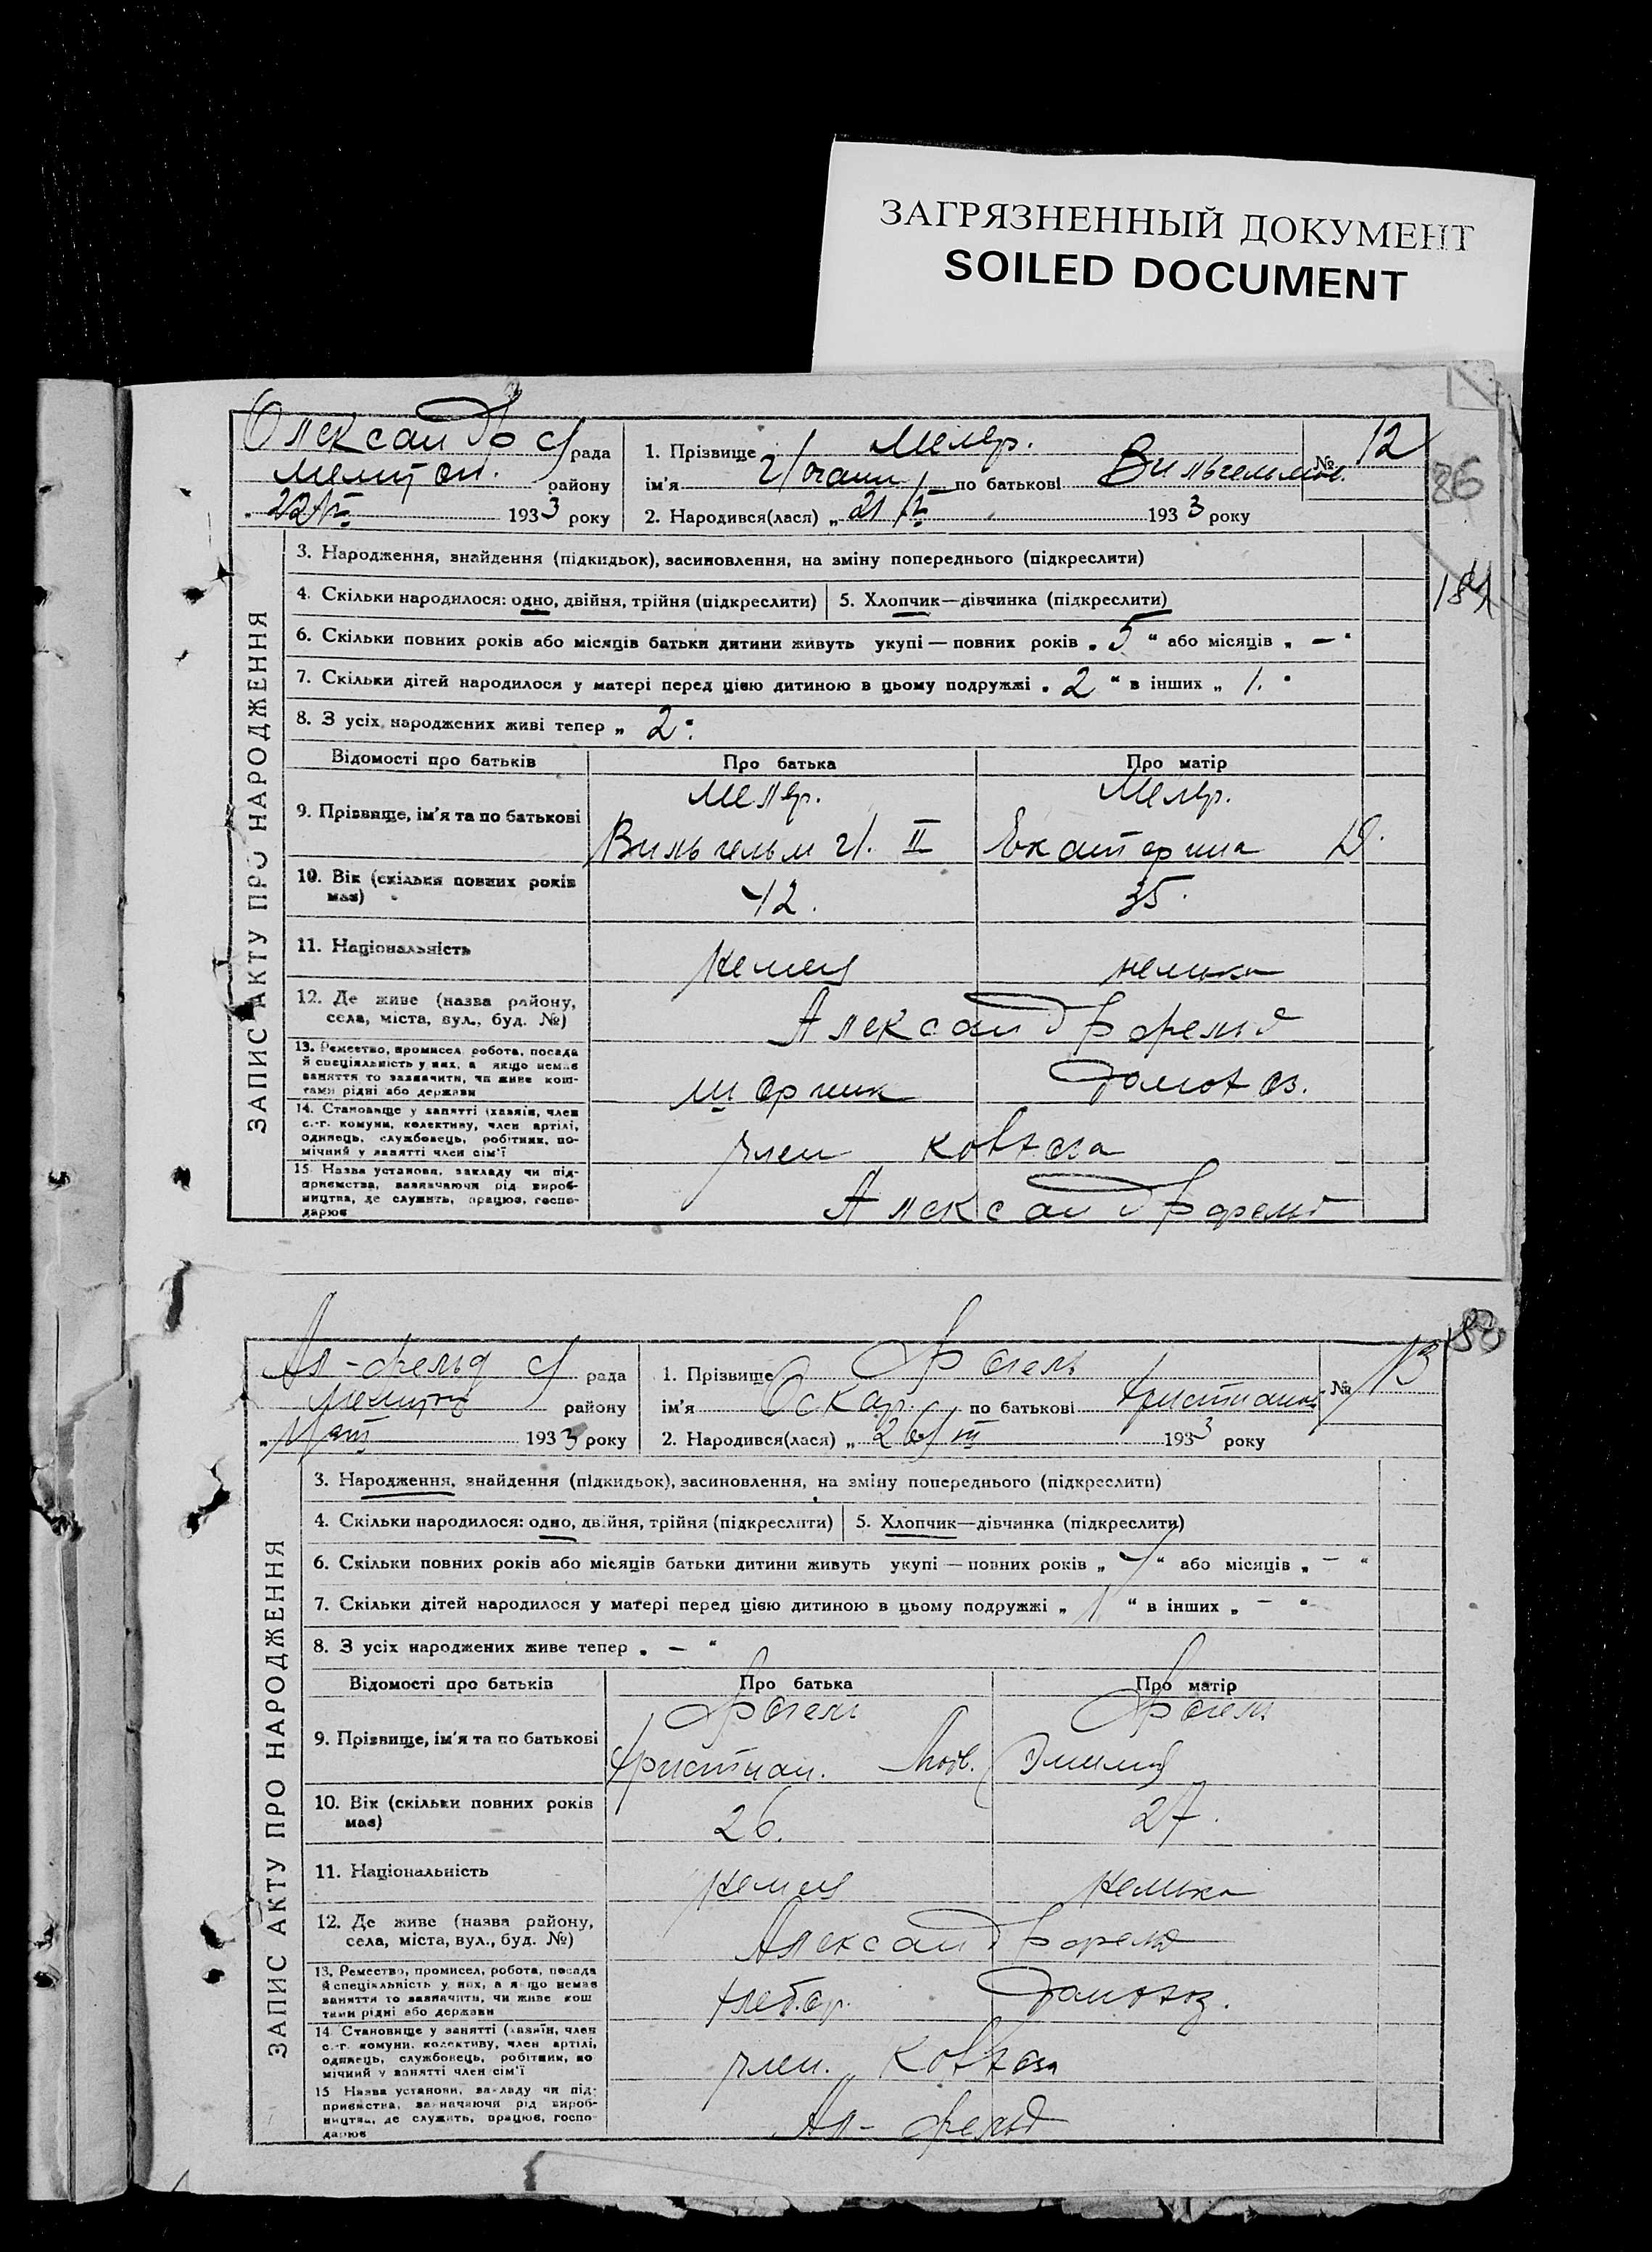 ЗАГРЯЗНЕННЫЙ ДОКУМЕНТ
SOILED DOCUMENT
Олександр с/рада
Мелитоп. району
193 3 року
1. Прізвище
ім'я по батькові Вильгельмов.
№ 12
2. Народився(лася) „ 21 193 3 року
86
184
ЗАПИС АКТУ ПРО НАРОДЖЕННЯ
3. Народження, знайдення (підкидьок), засиновлення, на зміну попереднього (підкреслити)
4. Скільки народилося: одно, двійня, трійня (підкреслити) 5. Хлопчик—дівчинка (підкреслити)
6. Скільки повних років або місяців батьки дитини живуть укупі — повних років „ 5 “ або місяців „ – “
7. Скільки дітей народилося у матері перед цією дитиною в цьому подружжі „ 2 “ в інших „ 1. “
8. З усіх народжених живі тепер „ 2 “
Відомості про батьків Про батька Про матір
9. Прізвище, ім'я та по батькові
Вильгельм И. II Екатерина Д.
10. Вік (скільки повних років має) 42. 35.
11. Національність немец немка
12. Де живе (назва району, села, міста, вул., буд. №) Александрфельд
13. Ремество, промисел, робота, посада
й спеціяльність у них, а якщо немає
заняття то зазначити, чи живе кош-
тами рідні або держави
шорник домохоз.
14. Становище у занятті (хазяїн, член
с.-г. комуни, колективу, член артілі,
одинець, службовець, робітник, по-
мічний у занятті член сім'ї
член колхоза
15. Назва установи, закладу чи під-
приємства, зазначаючи рід вироб-
ництва, де служить, працює, госпо-
дарює
Александрфельд
Ал-фельд с/рада
району
193 3 року
1. Прізвище Фогель
ім'я Оскар. по батькові Христианов
№ 13
2. Народився(лася) „ 26/III 193 3 року
ЗАПИС АКТУ ПРО НАРОДЖЕННЯ
3. Народження, знайдення (підкидьок), засиновлення, на зміну попереднього (підкреслити)
4. Скільки народилося: одно, двійня, трійня (підкреслити) 5. Хлопчик—дівчинка (підкреслити)
6. Скільки повних років або місяців батьки дитини живуть укупі — повних років „ “ або місяців „ – “
7. Скільки дітей народилося у матері перед цією дитиною в цьому подружжі „ 1 “ в інших „ – “
8. З усіх народжених живе тепер „ – “
Відомості про батьків Про батька Про матір
Фогель Фогель
9. Прізвище, ім'я та по батькові
Христиан. Эмилия
10. Вік (скільки повних років має) 26. 27.
11. Національність немец немка
12. Де живе (назва району, села, міста, вул., буд. №) Александрфельд
13. Ремество, промисел, робота, посада
й спеціяльність у них, а якщо немає
заняття то зазначити, чи живе кош
тами рідні або держави
хлебор. домохоз.
14. Становище у занятті (хазяїн, член
с.-г. комуни, колективу, член артілі,
одинець, службовець, робітник, по
мічний у занятті член сім'ї
член. колхоза
15. Назва установи, закладу чи під-
приємства, зазначаючи рід вироб-
ництва, де служить, працює, госпо-
дарює
Ал-фельд